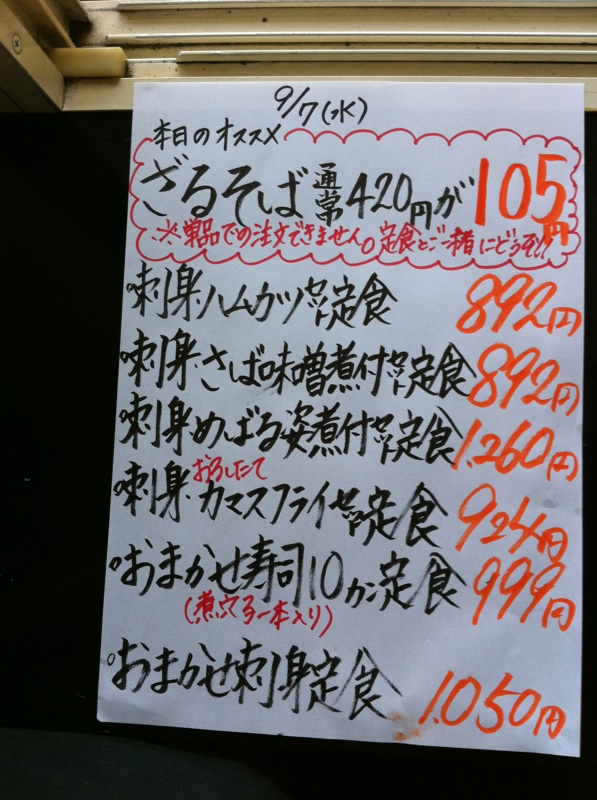 9/7(水)
本日のオススメ
ざるそば通常420円が105円
※単品での注文できません。定食とご一緒にどうぞ!!
刺身ハムカツセット定食 892円
刺身さば味噌煮付セット定食 892円
刺身めばる姿煮付セット定食 1,260円
おろしたて
刺身カマスフライセット定食 924円
おまかせ寿司10カン定食 999円
(煮穴子一本入り)
おまかせ刺身定食 1.050円